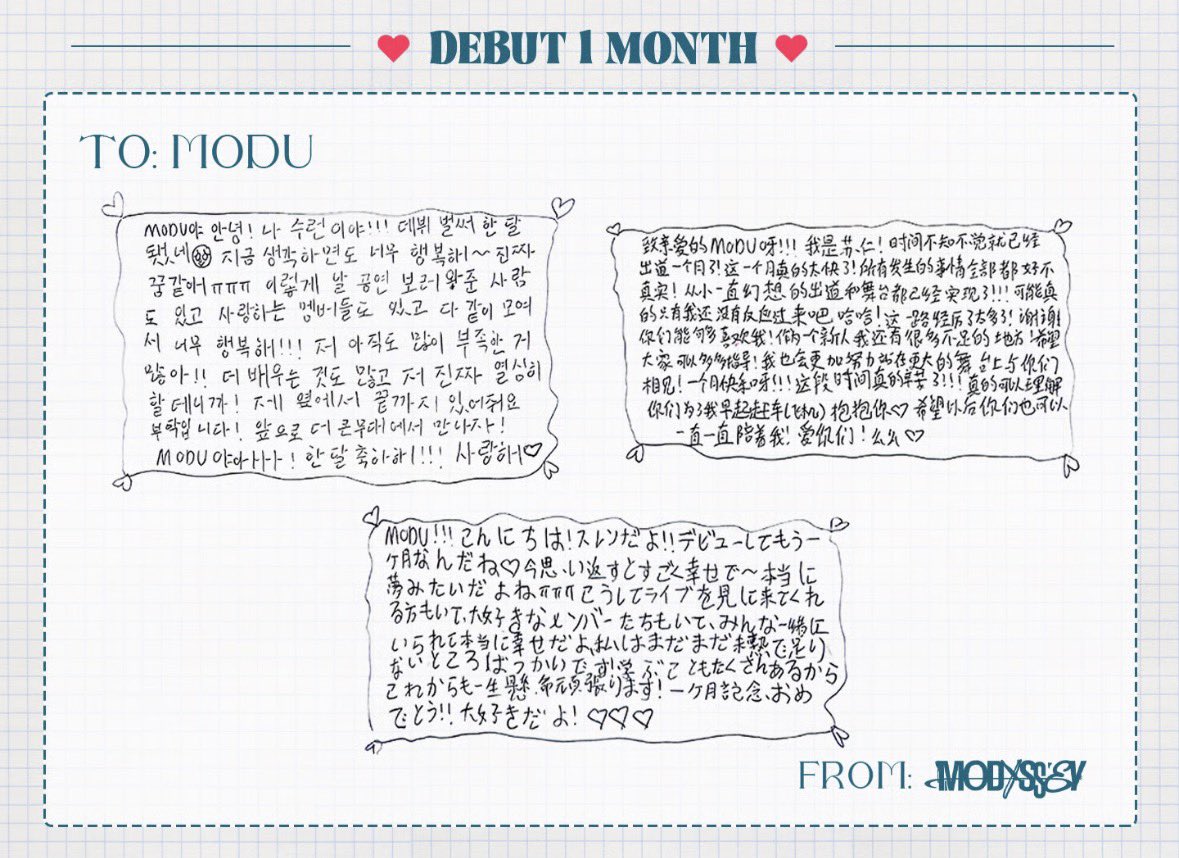 DEBUT 1 MONTH
TO: MODU
MODU야 안녕! 나 수런이야!!! 데뷔 벌써 한 달
됐네 지금 생각하면도 너무 행복해~ 진짜
꿈같아 ㅠㅠㅠ 이렇게 날 공연 보러 왕준 사람
도 있고 사랑하는 멤버들도 있고 다 같이 모여
서 너무 행복해!!! 저 아직도 많이 부족한 거
많아!! 더 배우는 것도 많고 저 진짜 열심히
할 테니까! 제 옆에서 끝까지 있어줘요
부탁입니다! 앞으로 더 큰 무대에서 만나자!
MODU 야아ㅏㅏㅏ! 한 달 축하해!!! 사랑해♡
致亲爱的MODU呀!!! 我是苏仁! 时间不知不觉就已经
出道一个月了!这一个月真的太快了!所有发生的事情全部都好不
真实! 从小一直幻想的出道和舞台都已经实现了!!! 可能真
的只有我还没有反应过来吧 哈哈! 这一路经历了太多了! 谢谢
你们能够多喜欢我! 做一个新人我还有很多不足的地方! 希望
大家可以多多指导! 我也会更加努力站在更大的舞台上与你们
相见! 一个月快乐呀!!! 这段时间真的辛苦了!!! 真的可以理解
你们为了我早起赶车(飞机) 抱抱你♡ 希望以后你们也可以
一直一直陪着我! 爱你们! 么么♡
MODU!!! こんにちは!スレンだよ!!デビューしてもう一
ヶ月なんだね♡今思い返すとすごく幸せで〜本当に
夢みたいだよねㅠㅠㅠこうしてライブを見に来てくれ
る方もいて、大好きなメンバーたちもいて、みんな一緒に
いられて本当に幸せだよ、私はまだまだ未熟で足り
ないところばっかいです!学ぶこともたくさんあるから
これからも一生懸命頑張ります! 一ヶ月記念、おめ
でとう!! 大好きだよ! ♡♡♡
FROM: MODYSSEY